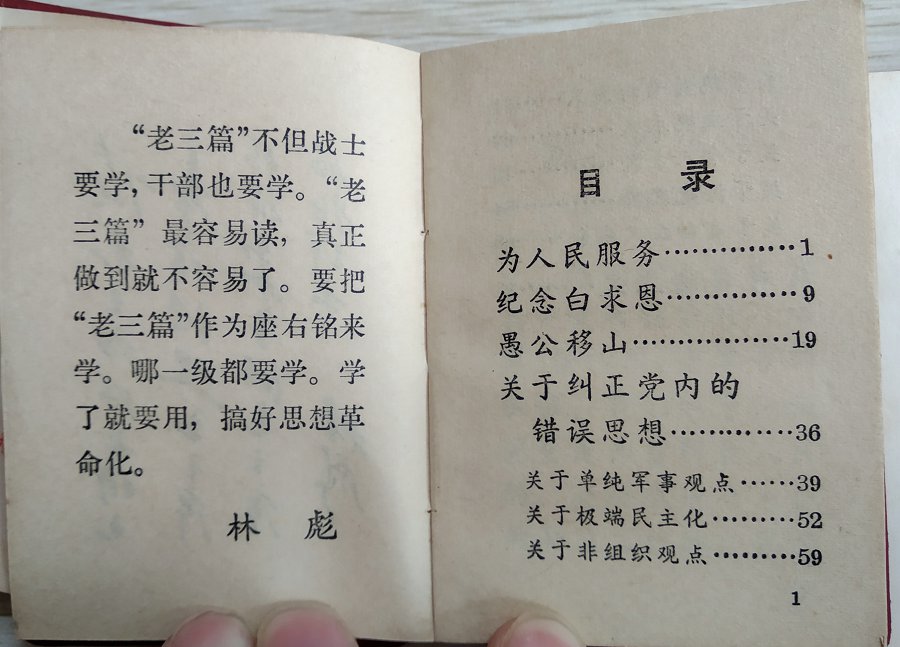 “老三篇”不但战士
要学,干部也要学。“老
三篇”最容易读，真正
做到就不容易了。要把
“老三篇”作为座右铭来
学。哪一级都要学。学
了就要用，搞好思想革
命化。
林 彪
目 录
为人民服务··············1
纪念白求恩··············9
愚公移山·················19
关于纠正党内的
错误思想·············36
关于单纯军事观点······39
关于极端民主化·········52
关于非组织观点·········59
1